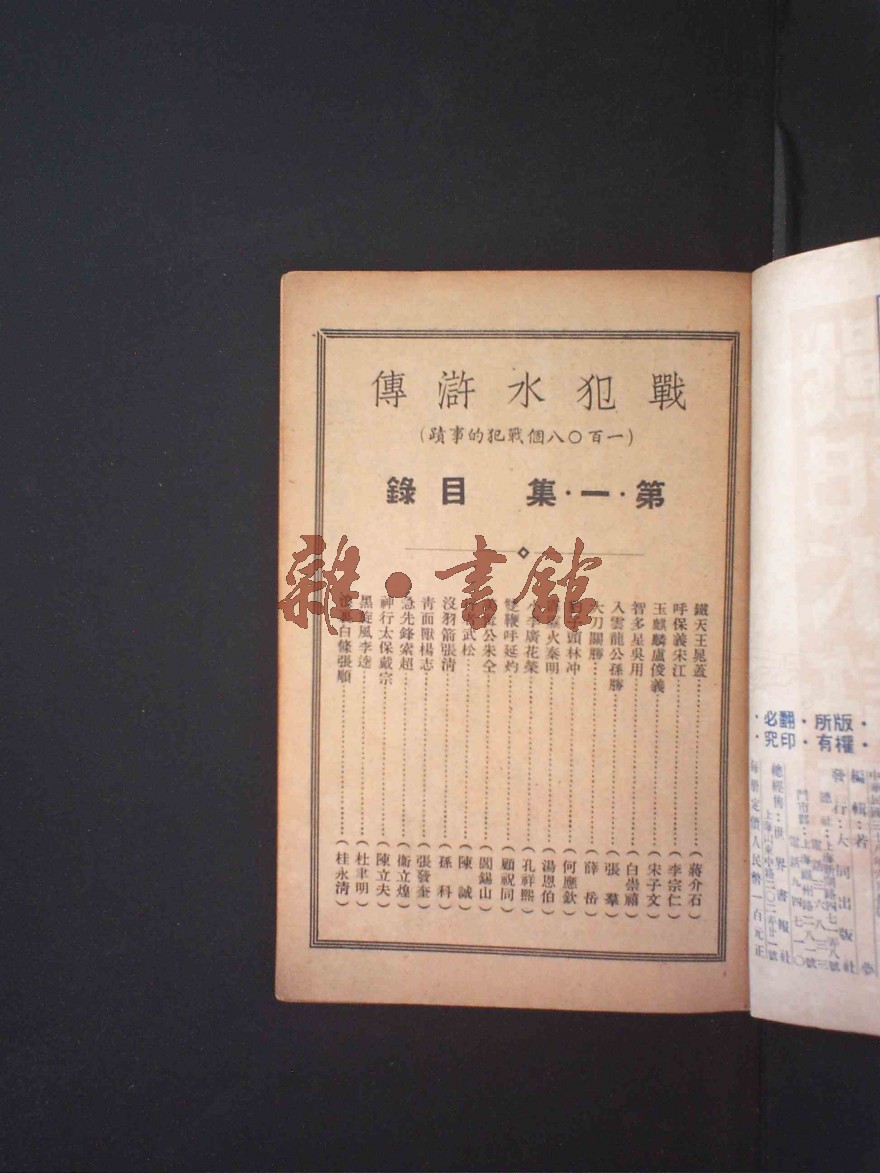 戰犯水滸傳
(一百〇八個戰犯的事蹟)
第·一·集 目錄
鐵天王晁蓋……(蔣介石)
呼保義宋江……(李宗仁)
玉麒麟盧俊義……(宋子文)
智多星吳用……(白崇禧)
入雲龍公孫勝……(張羣)
大刀關勝……(薛岳)
子頭林冲……(何應欽)
火秦明……(湯恩伯)
小李廣花榮……(孔祥熙)
雙鞭呼延灼……(顧祝同)
公朱仝……(閻錫山)
武松……(陳誠)
沒羽箭張清……(孫科)
青面獸楊志……(張發奎)
急先鋒索超……(衞立煌)
神行太保戴宗……(陳立夫)
黑旋風李逵……(杜聿明)
裏白條張順……(桂永清)
雜·書館
·版權·所有·翻印·必究·
編輯:若
發行:大同出版社
總經售:世界書報社
每冊定價人民幣一百元正